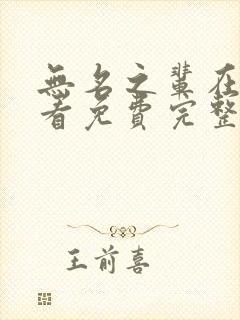 無名之輩在
看免費完整
王前喜